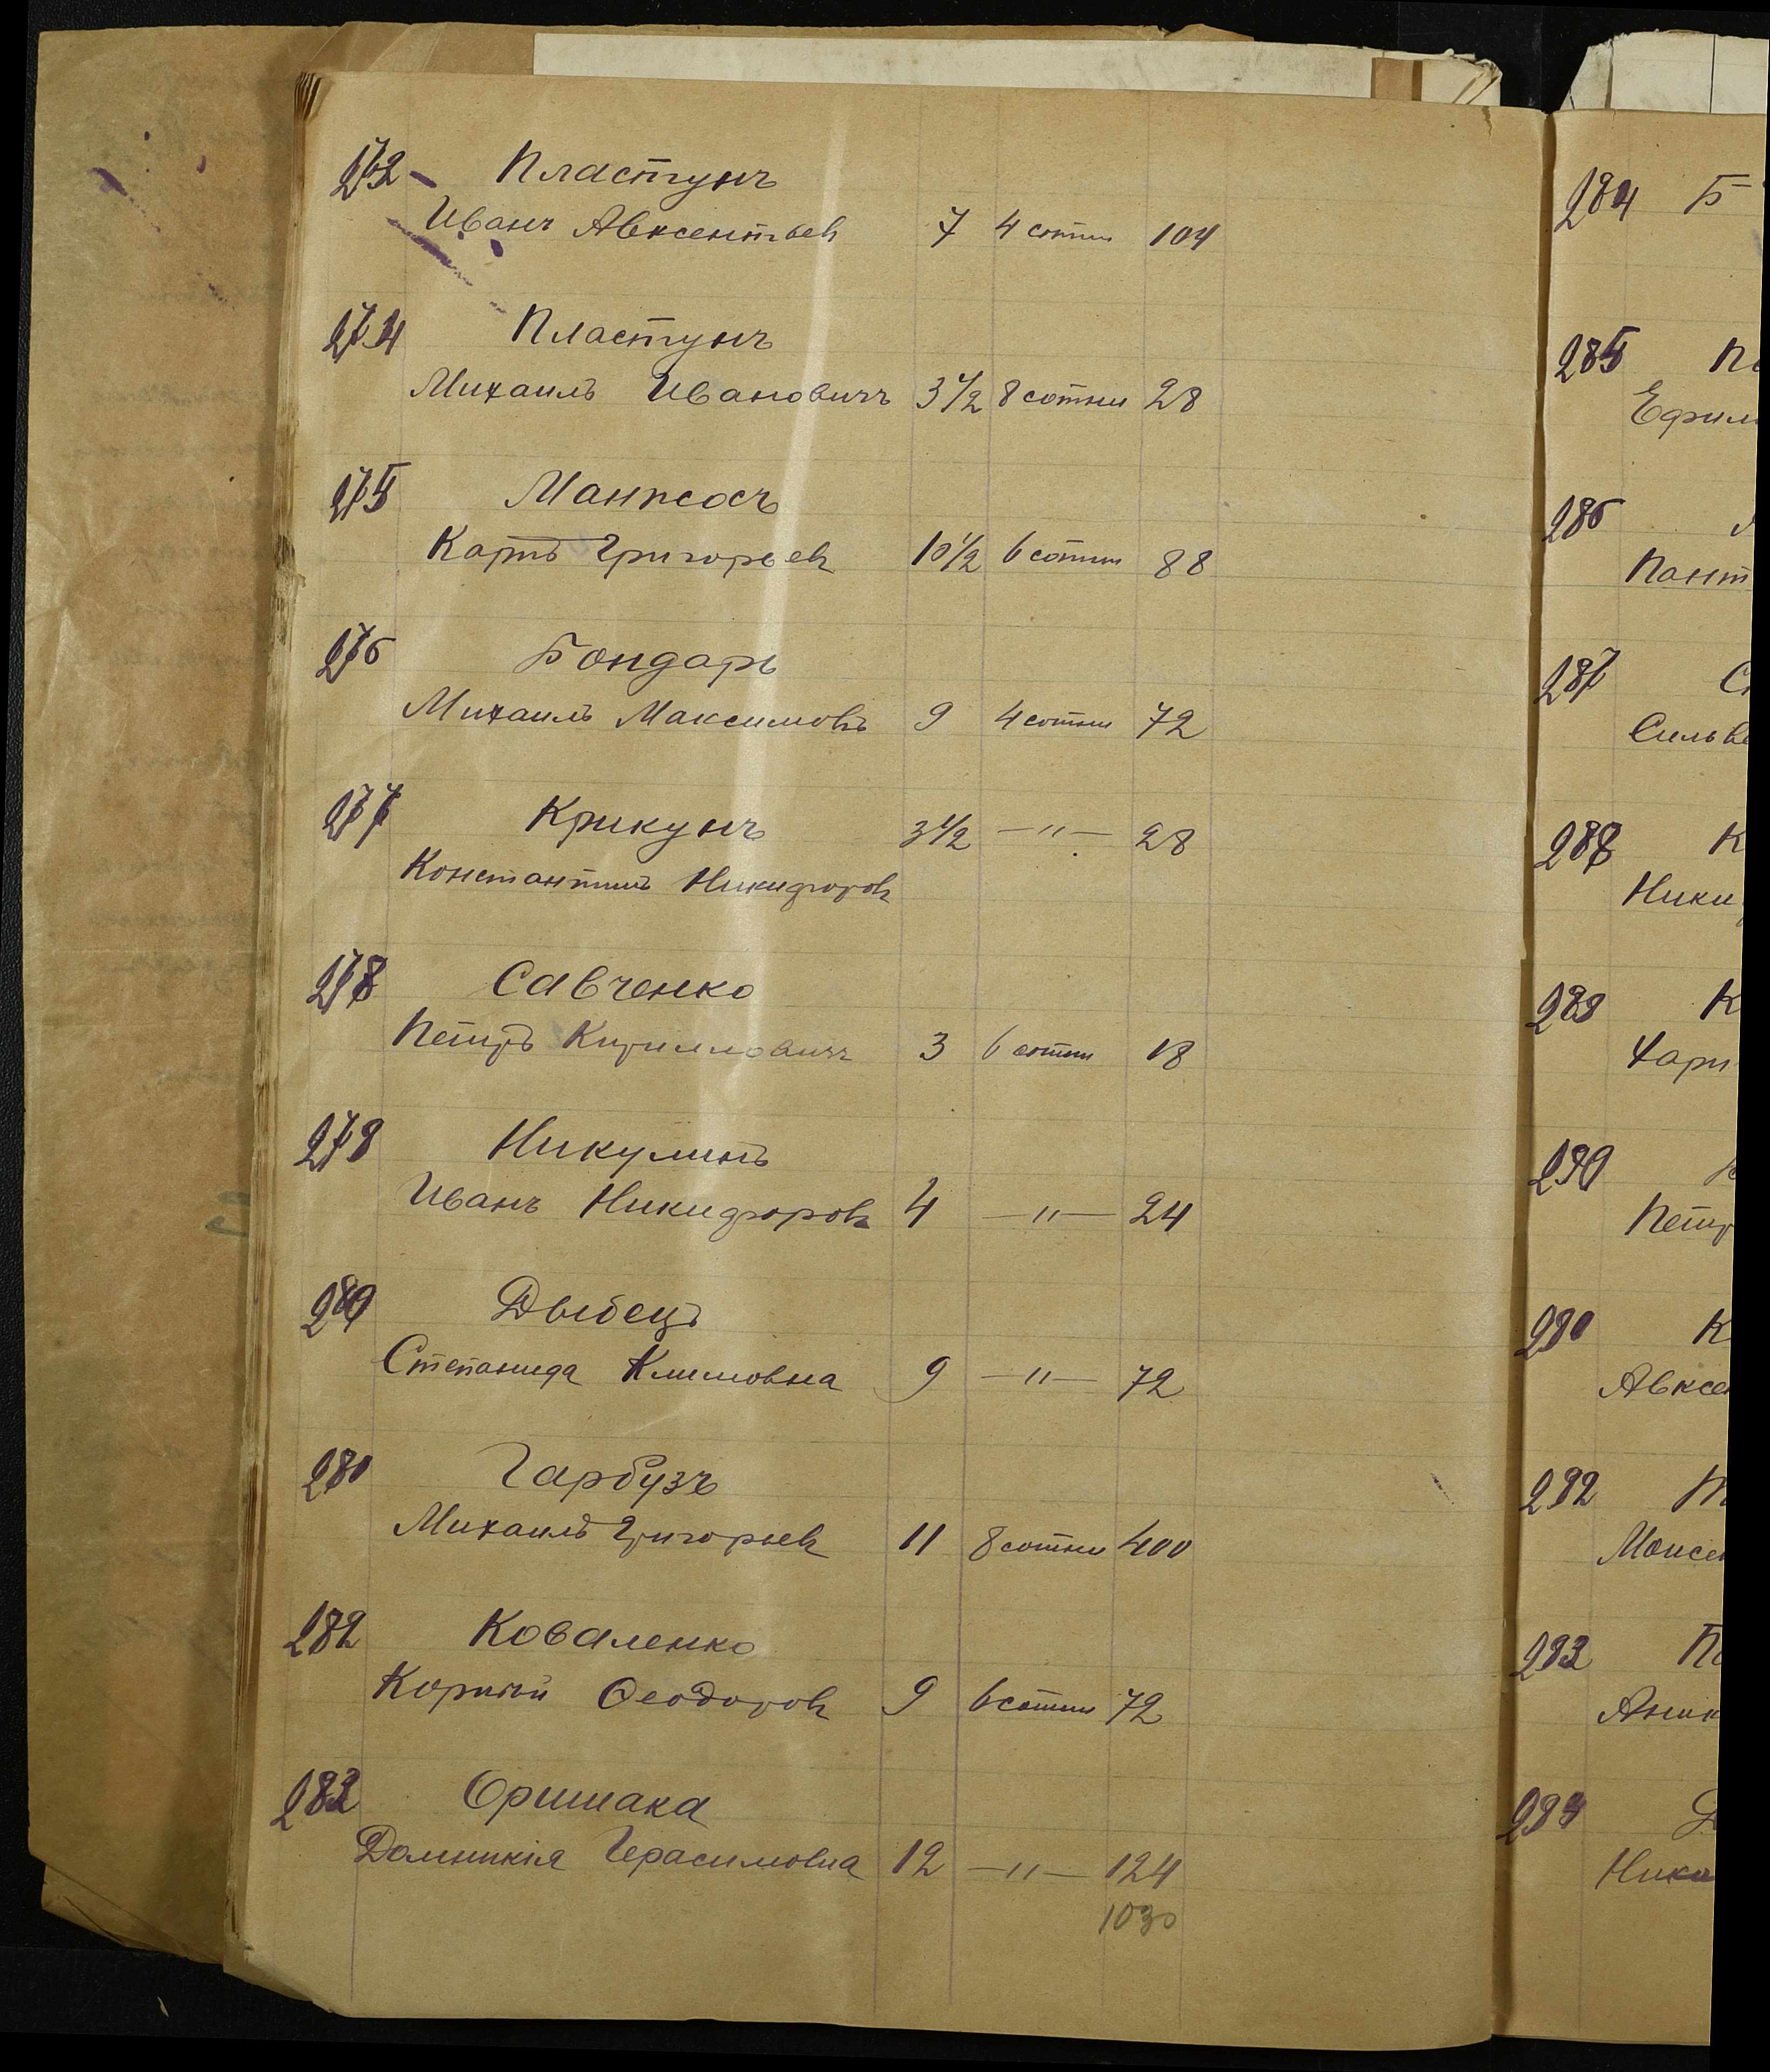 Пластунъ
Иванъ Авксентьев 7 4 сотни 104
274 Пластунъ
Михаилъ Ивановичъ 3 1/2 8 сотни 28
275 Манжосъ
Карпъ Григорьев 10 1/2 6 сотни 88
276 Бондарь
Михаилъ Максимовъ 9 4 сотни 72
277 Крикунъ 3 1/2 —"— 28
Константинъ Никифоров
278 Савченко
Петръ Кирилловичъ 3 6 сотни 18
279 Никулинъ
Иванъ Никифоров 4 —"— 24
Дыбецъ
Степанида Климовна 9 —"— 72
Гарбузъ
Михаилъ Григорьев 11 8 сотни 400
282 Коваленко
Корнѣй Феодоров 9 6 сотни 72
283 Оришака
Домникія Герасимовна 12 —"— 124
1030
284 Б
285 По
Ефим
286
Пант
287 С
Сильве
288 К
Ники
289 К
Хари
Петр
К
Авксе
292
Моисе
293 По
Аник
294
Ники